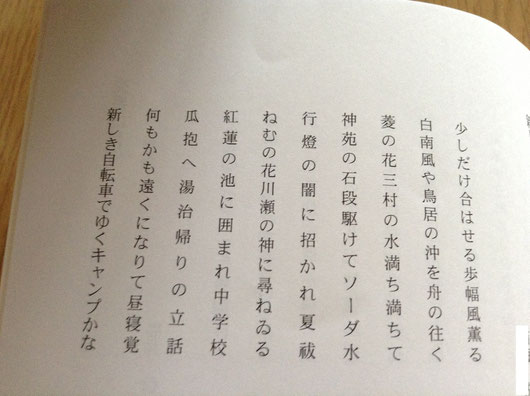 少しだけ合はせる歩幅風薫る
白南風や鳥居の沖を舟の往く
菱の花三村の水満ち満ちて
神苑の石段駆けてソーダ水
行燈の闇に招かれ夏祓
ねむの花川瀬の神に尋ねゐる
紅蓮の池に囲まれ中学校
瓜抱へ湯治帰りの立話
何もかも遠くになりて昼寝覚
新しき自転車でゆくキャンプかな